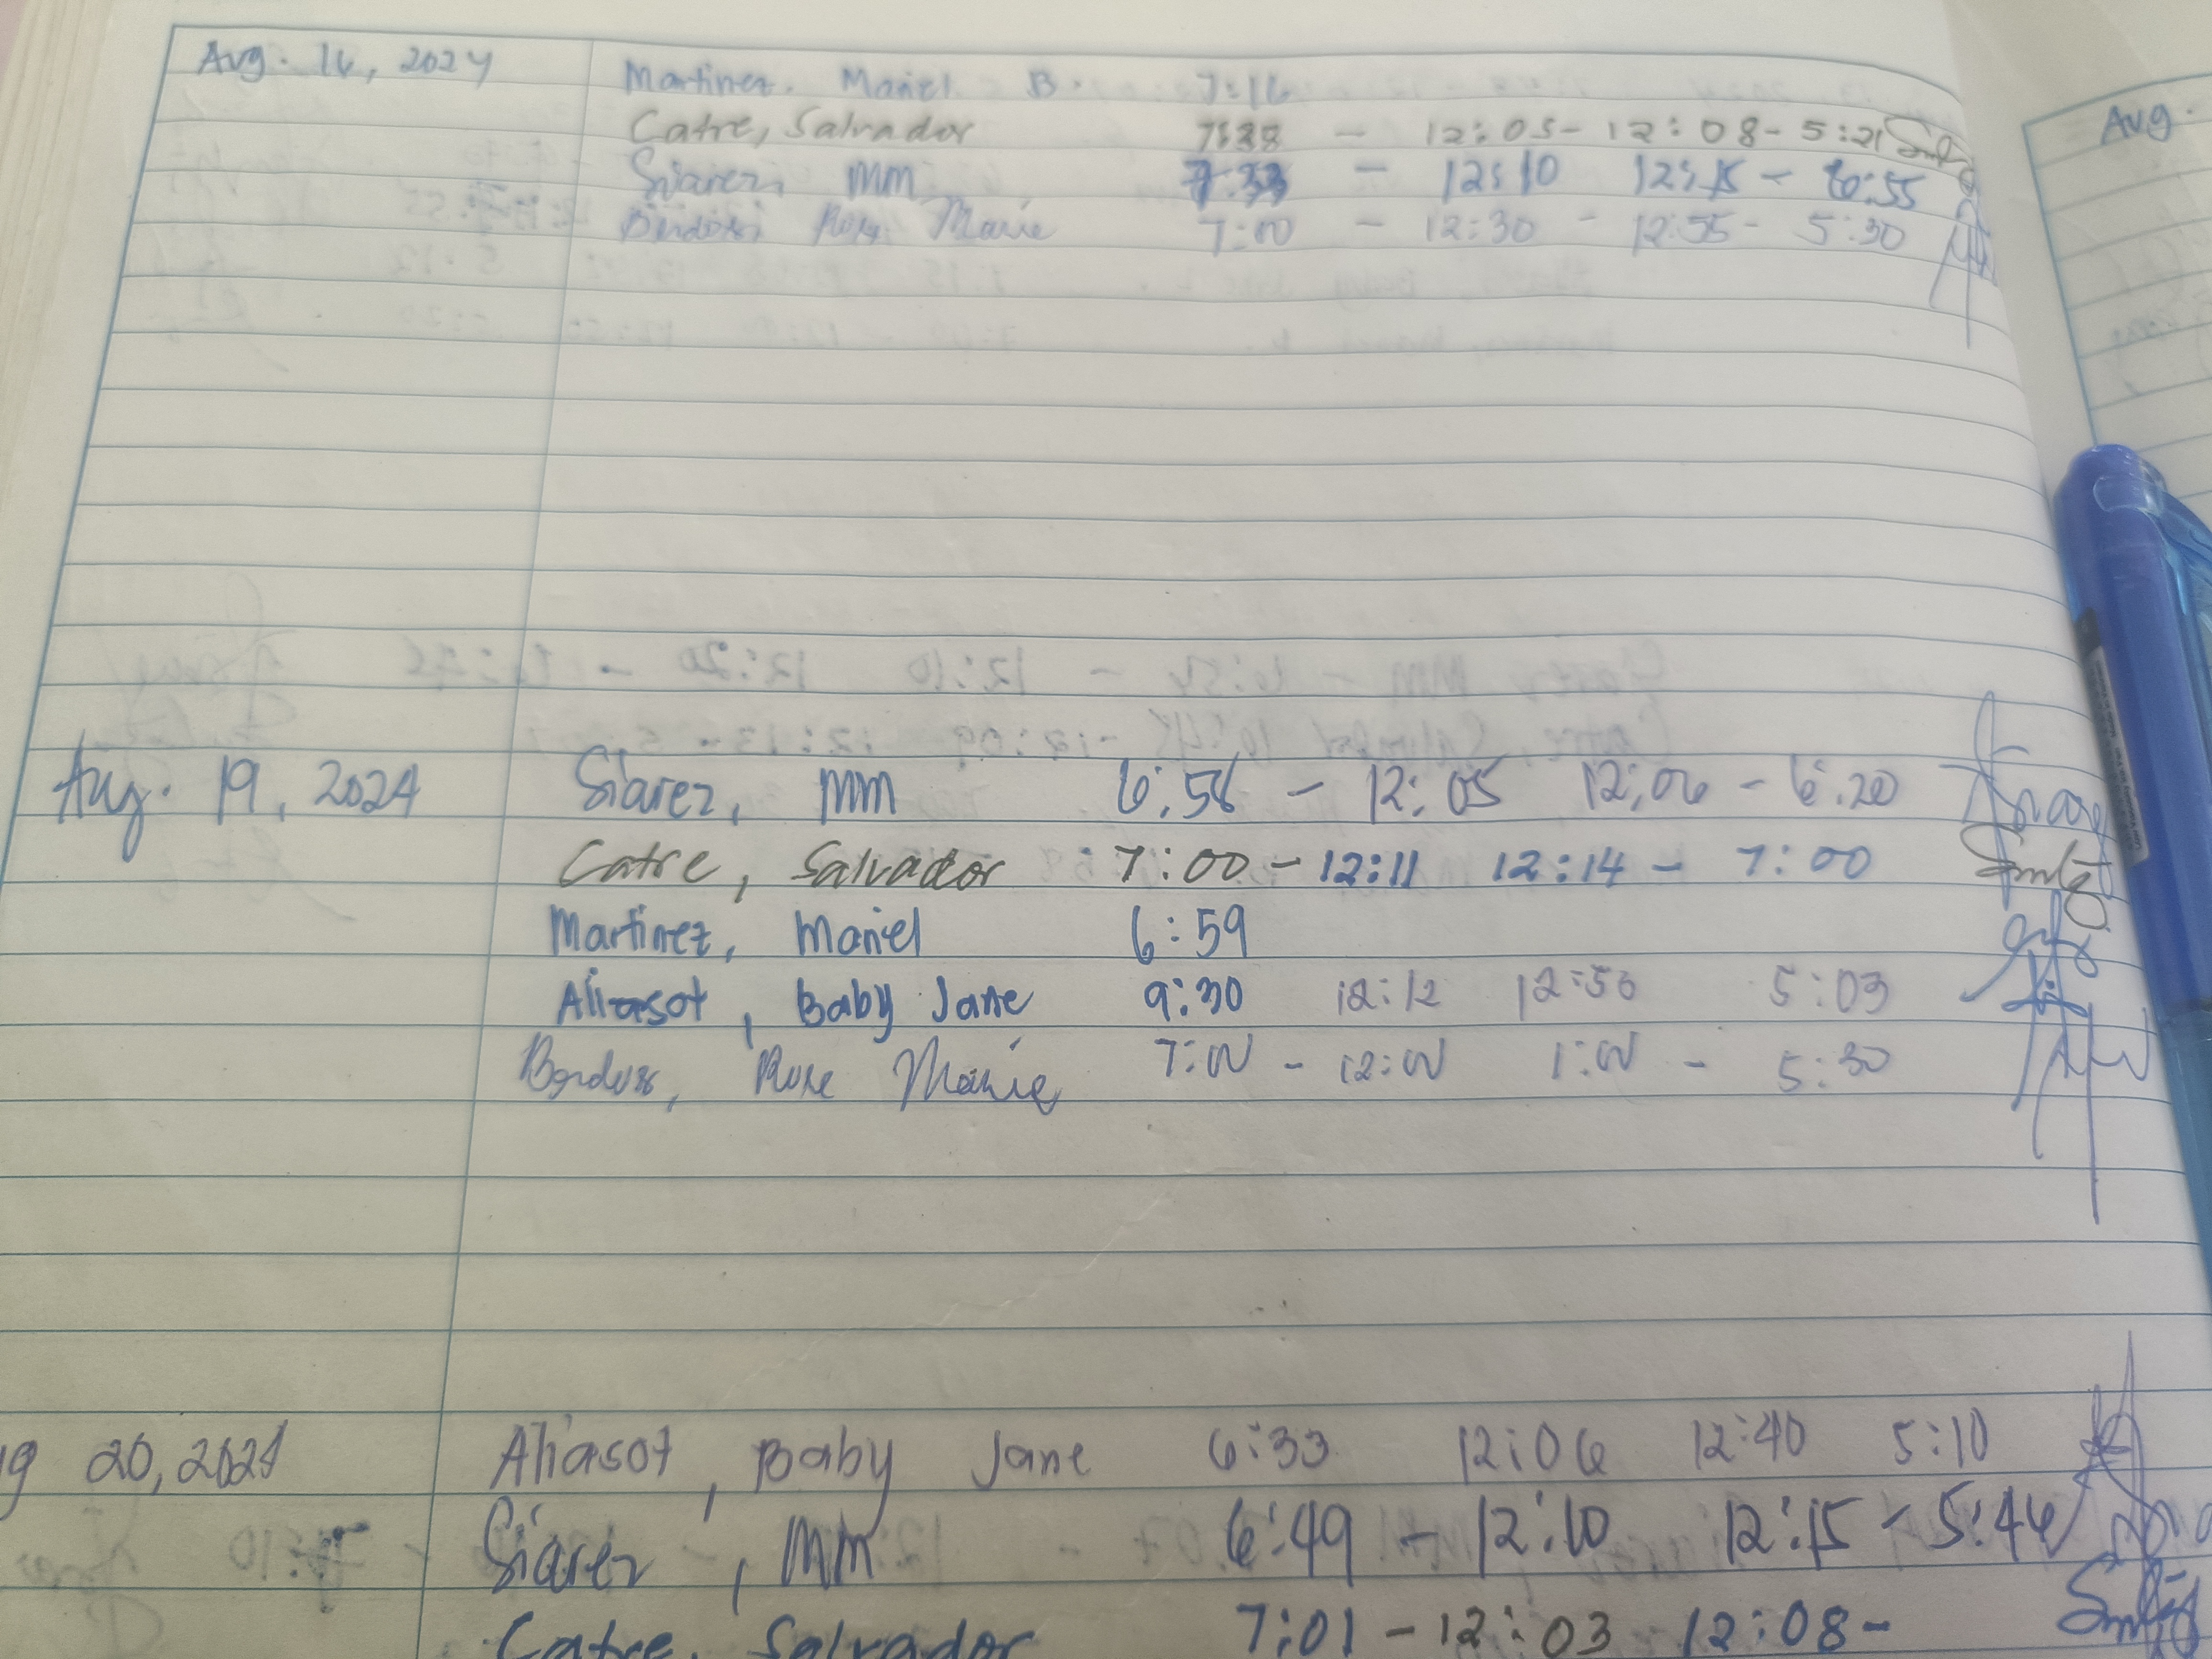 Aug. 16, 2024 Martinez, Mariel B. 7:16
Catre, Salvador 7:28 - 12:05 - 12:08 - 5:21
Siarez, MM 7:33 - 12:10 12:15 - 6:55
Rose Marie 7:00 - 12:30 - 12:55 - 5:30
Aug. 19, 2024 Siarez, MM 6:56 - 12:05 12:06 - 6:20
Catre, Salvador 7:00 - 12:11 12:14 - 7:00
Martinez, Mariel 6:59
Aliasot, Baby Jane 9:30 12:12 12:56 5:03
Rose Marie 7:00 - 12:00 1:00 - 5:30
g 20, 2024 Aliasot, Baby Jane 6:33 12:06 12:40 5:10
Siarez, MM 6:49 - 12:10 12:15 - 5:46
Catre, Salvador 7:01 - 12:03 12:08 -
Aug.